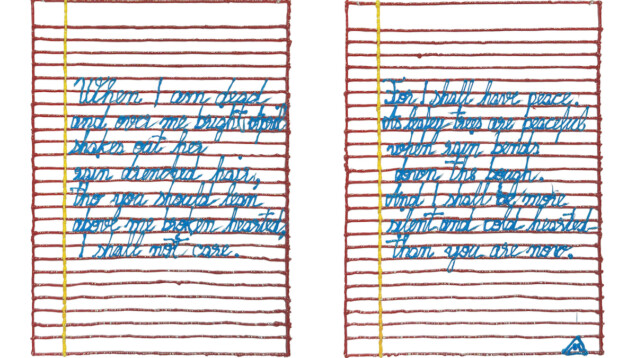 When I am dead
and over me bright April
shakes out her
rain drenched hair,
Tho you should lean
above me broken hearted,
I shall not care.
For I shall have peace.
As leafy trees are peaceful
when rain bends
down the bough.
And I shall be more
silent and cold hearted
than you are now.